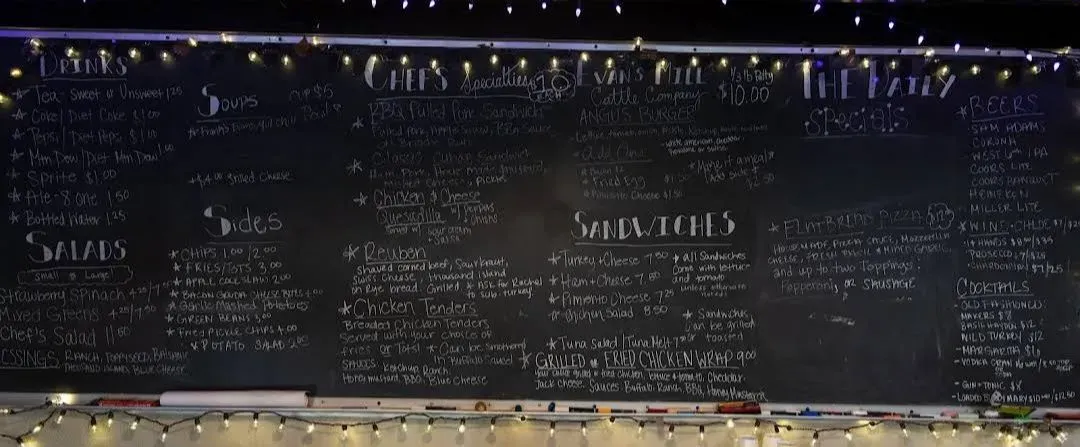 DRINKS
★ Tea - Sweet or Unsweet 1.25
★ Coke / Diet Coke $1.00
★ Pepsi / Diet Pepsi $1.00
★ Mtn Dew / Diet Mtn Dew 1.00
★ Sprite $1.00
★ Ale-8 one 1.50
★ Bottled Water 1.25
SALADS
Small or Large
Strawberry Spinach 4.25/7
Mixed Greens 4.25/
Chef's Salad 11.50
ESSINGS RANCH, POPPYSEED, BALSAMIC
THOUSAND ISLAND, BLUE CHEESE
SOUPS
Cup $5
Bowl
+$4.00 Grilled Cheese
SIDES
★ CHIPS 1.00/2.00
★ FRIES/TOTS 3.00
★ APPLE COLESLAW 2.00
★ BACON GOUDA CHEESE BITES 4.00
Mashed Potatoes
★ GREEN BEANS 3.00
★ Fried Pickle CHIPS 4.00
★ POTATO SALAD 2.50
CHEF'S Specialties 10 EACH
★ BBQ Pulled Pork Sandwich
Pulled Pork, Apple Slaw, BBQ Sauce
★ Classic Cuban Sandwich
Ham, Pork, House Made Mustard,
Melted Cheese, Pickle
★ Chicken & Cheese
Quesadilla w/ peppers
onions
Served w/ sour cream
+ salsa
★ Reuben
Shaved corned beef, Saurkraut,
Swiss Cheese, thousand island
on Rye bread. Grilled ★ ASK for Rachel
to sub turkey
★ Chicken Tenders
Breaded Chicken Tenders
Served with your Choice of
fries or Tots! ★ Can be Smothered
in Buffalo Sauce!
SAUCES: Ketchup, Ranch
Honey Mustard, BBQ, Blue Cheese
EVANS MILL
Cattle Company
ANGUS BURGER
1/3 lb Patty
$10.00
Lettuce, tomato, onion, Pickle, Ketchup,
white american, cheddar,
Add Ons
★ Fried Egg
★ Pimento Cheese $1.50
★ Make it a meal ★
Add side +
$2.50
SANDWICHES
★ Turkey + Cheese 7.50
★ Ham + Cheese 7.50
★ Pimento Cheese 7.25
or Chicken Salad 8.50
★ Tuna Salad / Tuna Melt 7
★ All Sandwiches
Come with lettuce
and tomato
unless otherwise
noted
★ Sandwiches
can be grilled
or toasted
★ GRILLED or FRIED CHICKEN WRAP 9.00
your choice grilled or fried chicken, lettuce + tomato, cheddar,
Jack cheese. Sauces Buffalo, Ranch, BBQ, Honey Mustard
THE DAILY
Specials
★ FLATBREAD PIZZA $12
HOUSE MADE PIZZA SAUCE, MOZZARELLA
CHEESE, FRESH BASIL & FRESH GARLIC
and up to two Toppings:
Pepperoni or SAUSAGE
★ BEERS
SAM ADAMS
CORONA
WEST 6th IPA
COORS LITE
COORS BANQUET
HEINEKEN
MILLER LITE
★ WINE
PROSECCO
CHARDONNAY $7/$25
COCKTAILS
OLD FASHIONED:
MAKERS $8
BASIL HAYDEN $12
WILD TURKEY $12
- MARGARITA
- VODKA CRAN
- GIN + TONIC $8
- LOADED BLOODY MARY $10.00/$12.50